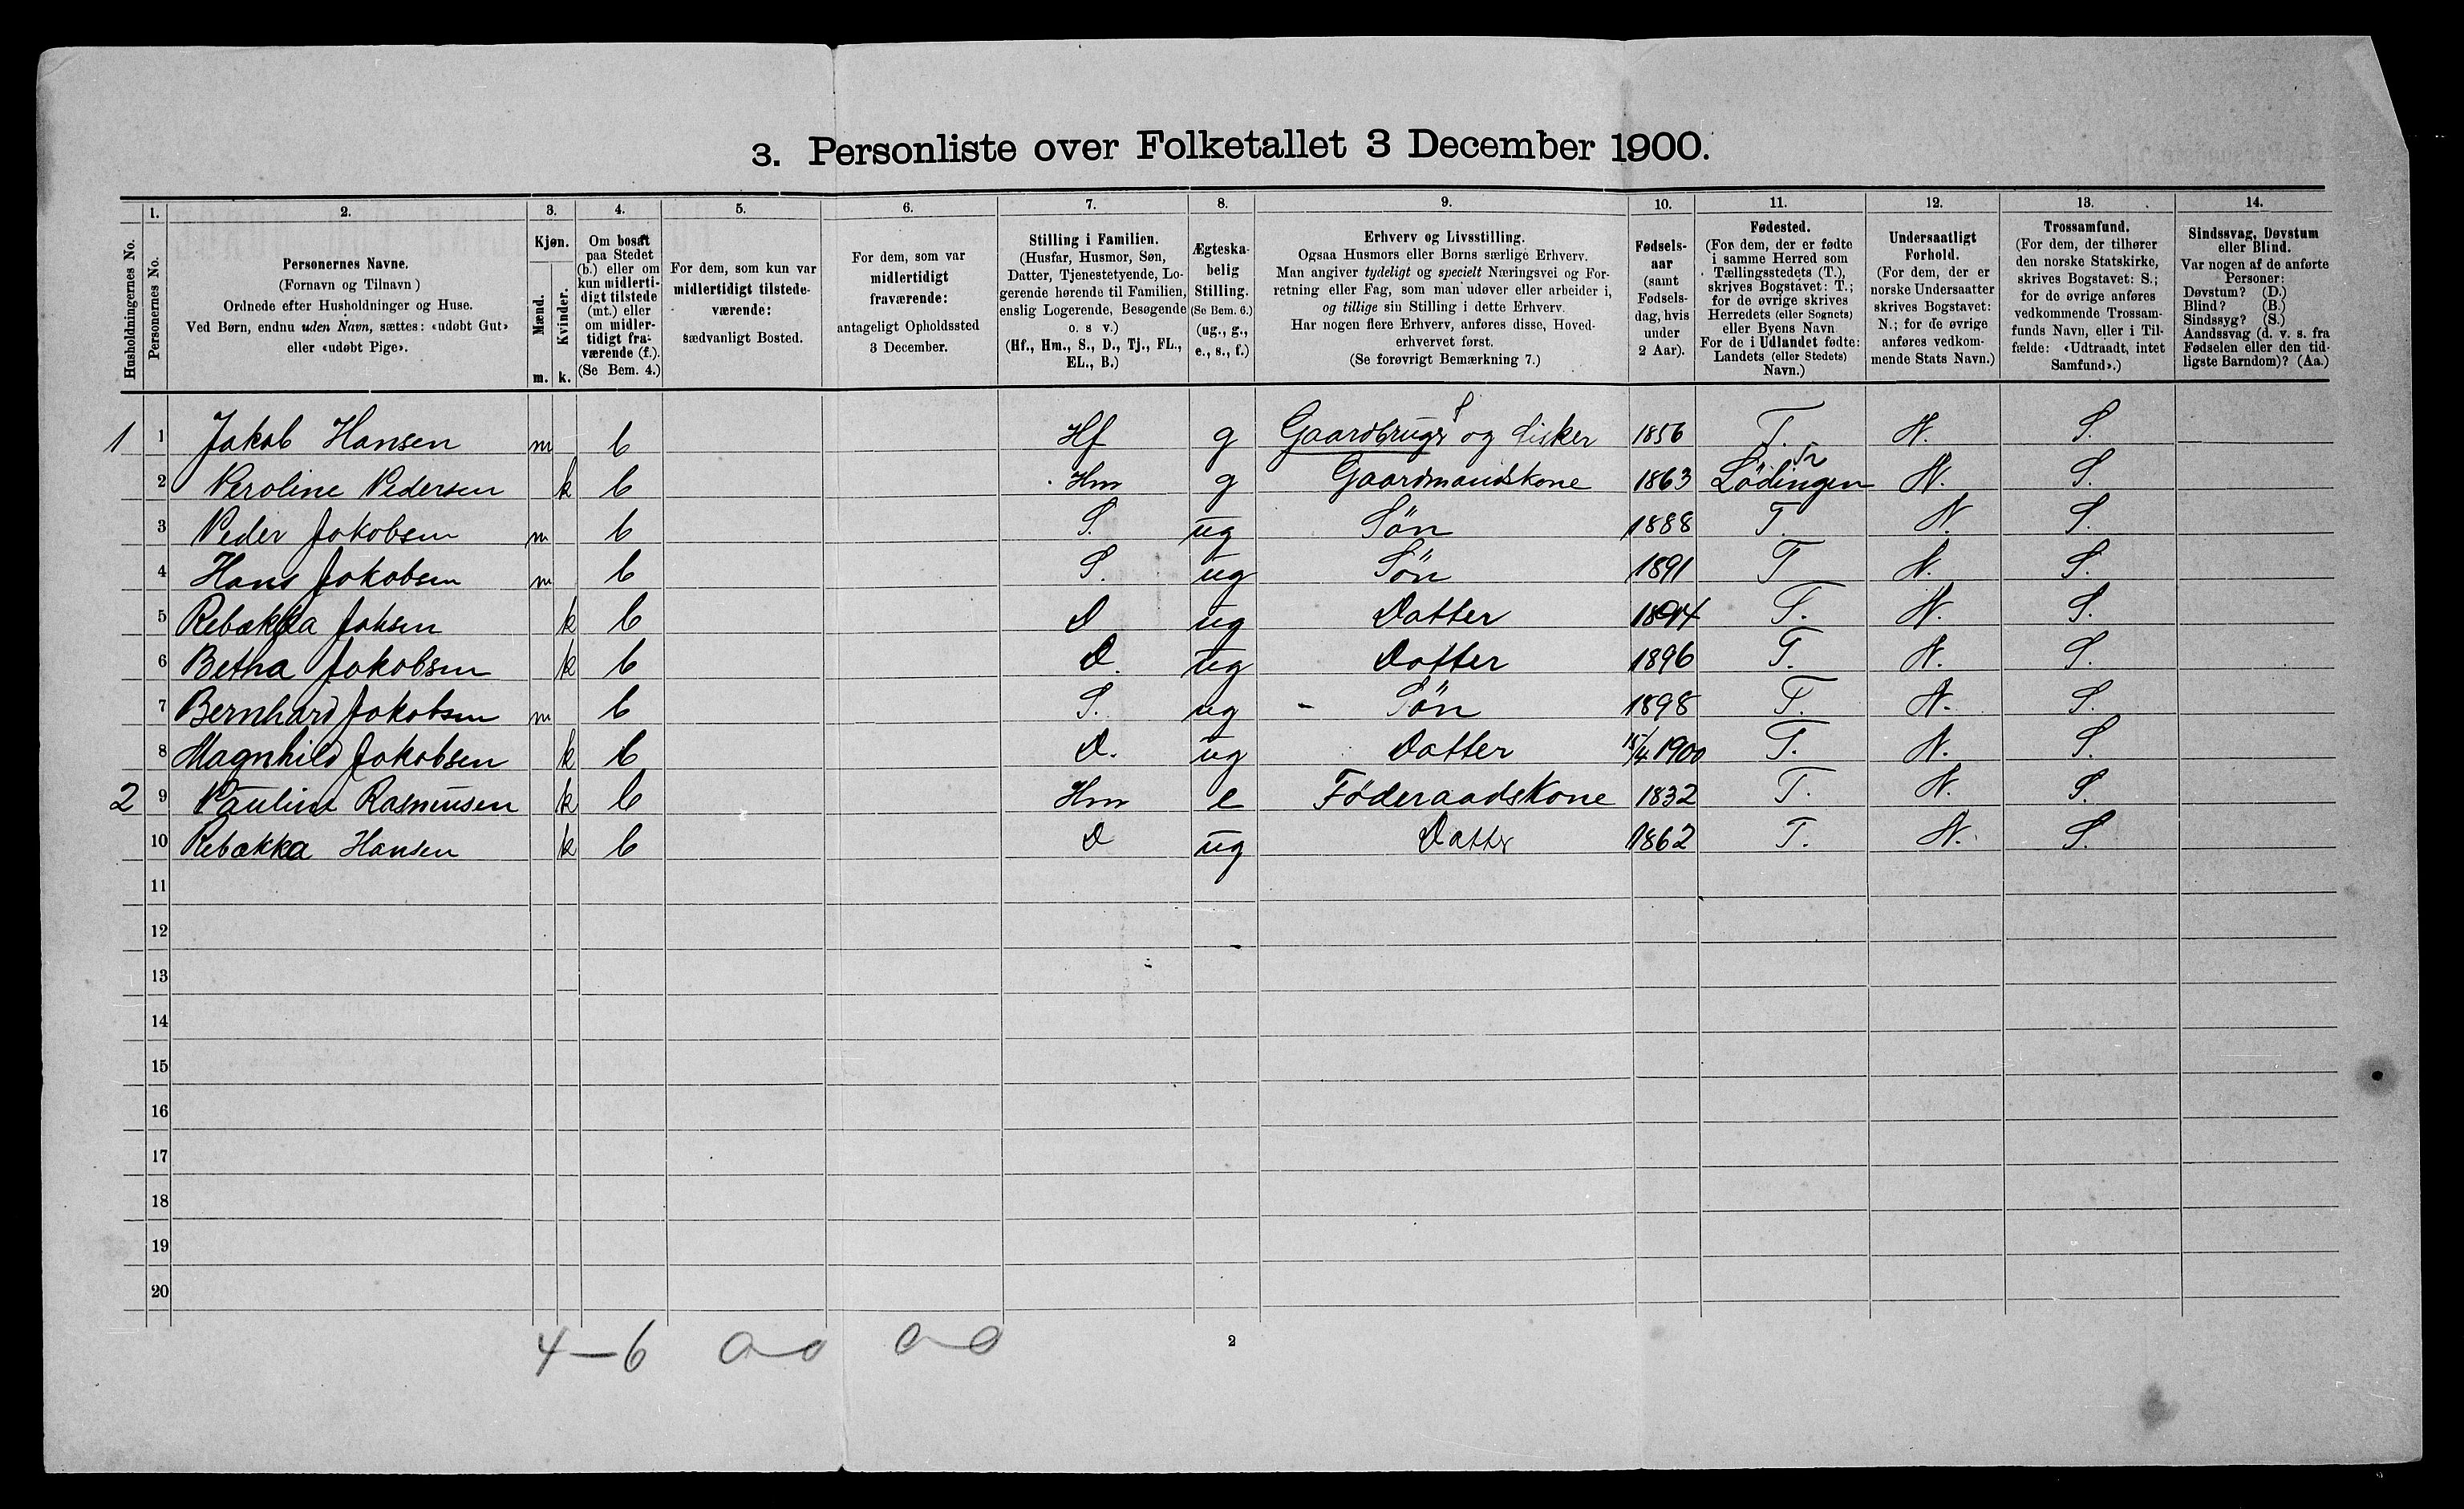 3. Personliste over Folketallet 3 December 1900.
Husholdningernes No.
1.
Personernes No.
2.
Personernes Navne.
(Fornavn og Tilnavn)
Ordnede efter Husholdninger og Huse.
Ved Børn, endnu uden Navn, sættes: «udøbt Gut»
eller «udøbt Pige».
3.
Kjøn.
Mænd.
Kvinder.
m. k.
4.
Om bosat
paa Stedet
(b.) eller om
kun midlerti-
digt tilstede
(mt.) eller
om midler-
tidigt fra-
værende (f.).
(Se Bem. 4.)
5.
For dem, som kun var
midlertidigt tilstede-
værende:
sædvanligt Bosted.
6.
For dem, som var
midlertidigt
fraværende:
antageligt Opholdssted
3 December.
7.
Stilling i Familien.
(Husfar, Husmor, Søn,
Datter, Tjenestetyende, Lo-
gerende hørende til Familien,
enslig Logerende, Besøgende
o. s v.)
(Hf., Hm., S., D., Tj., FL.,
EL., B.)
8.
Ægteska-
belig
Stilling.
(Se Bem. 6.)
(ug., g.,
e., s., f.)
9.
Erhverv og Livsstilling.
Ogsaa Husmors eller Børns særlige Erhverv.
Man angiver tydeligt og specielt Næringsvei og For-
retning eller Fag, som man udøver eller arbeider i,
og tillige sin Stilling i dette Erhverv.
Har nogen flere Erhverv, anføres disse, Hoved-
erhvervet først.
(Se forøvrigt Bemærkning 7.)
10.
Fødsels-
aar
(samt
Fødsels-
dag, hvis
under
2 Aar).
11.
Fødested.
(For dem, der er fødte
i samme Herred som
Tællingsstedets (T.),
skrives Bogstavet: T.;
for de øvrige skrives
Herredets (eller Sognets)
eller Byens Navn
For de i Udlandet fødte:
Landets (eller Stedets)
Navn.)
12.
Undersaatligt
Forhold.
(For dem, der er
norske Undersaatter
skrives Bogstavet:
N.; for de øvrige
anføres vedkom-
mende Stats Navn.)
13.
Trossamfund.
(For dem, der tilhører
den norske Statskirke,
skrives Bogstavet: S.;
for de øvrige anføres
vedkommende Trossam-
funds Navn, eller i Til-
fælde: «Udtraadt, intet
Samfund».)
14.
Sindssvag, Døvstum
eller Blind.
Var nogen af de anførte
Personer:
Døvstum? (D.)
Blind? (B.)
Sindssyg? (S.)
Aandssvag (d. v. s. fra
Fødselen eller den tid-
ligste Barndom)? (Aa.)
1 1 Jakob Hansen m b Hf g Gaardbruger og fisker 1856 T. N. S.
2 Peroline Pedersen k b Hm g Gaardmandskone 1863 Lödingen N. S.
3 Peder Jakobsen m b S. ug Sön 1888 T. N. S.
4 Hans Jakobsen m b S. ug Sön 1891 T N. S.
5 Rebækka Jobsen k b D ug Datter 1894 T. N. S.
6 Betna Jakobsen k b D. ug Datter 1896 T. N. S.
7 Bernhard Jakobsen m b S. ug - Sön 1898 T. N. S.
8 Magnhild Jakobsen k b D. ug Datter 15/4 1900 T. N. S.
2 9 Pauline Rasmusen k b Hm e Föderaadskone 1832 T. N. S.
10 Rebækka Hansen k b D ug Datter 1862 T. N. S.
11
12
13
14
15
16
17
18
19
20
4 - 6 0-0 0-0
2